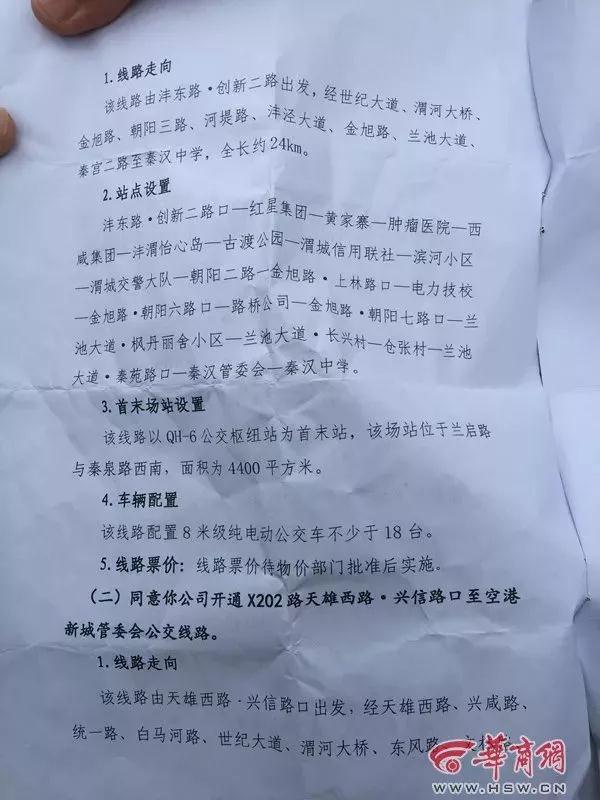 1.线路走向
该线路由沣东路·创新二路出发，经世纪大道、渭河大桥、
金旭路、朝阳三路、河堤路、沣泾大道、金旭路、兰池大道、
秦宫二路至秦汉中学，全长约24km。
2.站点设置
沣东路·创新二路口—红星集团—黄家寨—肿瘤医院—西
咸集团—沣渭怡心岛—古渡公园—渭城信用联社—滨河小区
—渭城交警大队—朝阳二路—金旭路·上林路口—电力技校
—金旭路·朝阳六路口—路桥公司—金旭路·朝阳七路口—兰
池大道·枫丹丽舍小区—兰池大道·长兴村—仓张村—兰池
大道·秦苑路口—秦汉管委会—秦汉中学。
3.首末场站设置
该线路以QH-6公交枢纽站为首末站，该场站位于兰启路
与秦泉路西南，面积为4400平方米。
4.车辆配置
该线路配置8米级纯电动公交车不少于18台。
5.线路票价：线路票价待物价部门批准后实施。
（二）同意你公司开通X202路天雄西路·兴信路口至空港
新城管委会公交线路。
1.线路走向
该线路由天雄西路·兴信路口出发，经天雄西路、兴咸路、
统一路、白马河路、世纪大道、渭河大桥、东风路、
华商网
WWW.HSW.CN